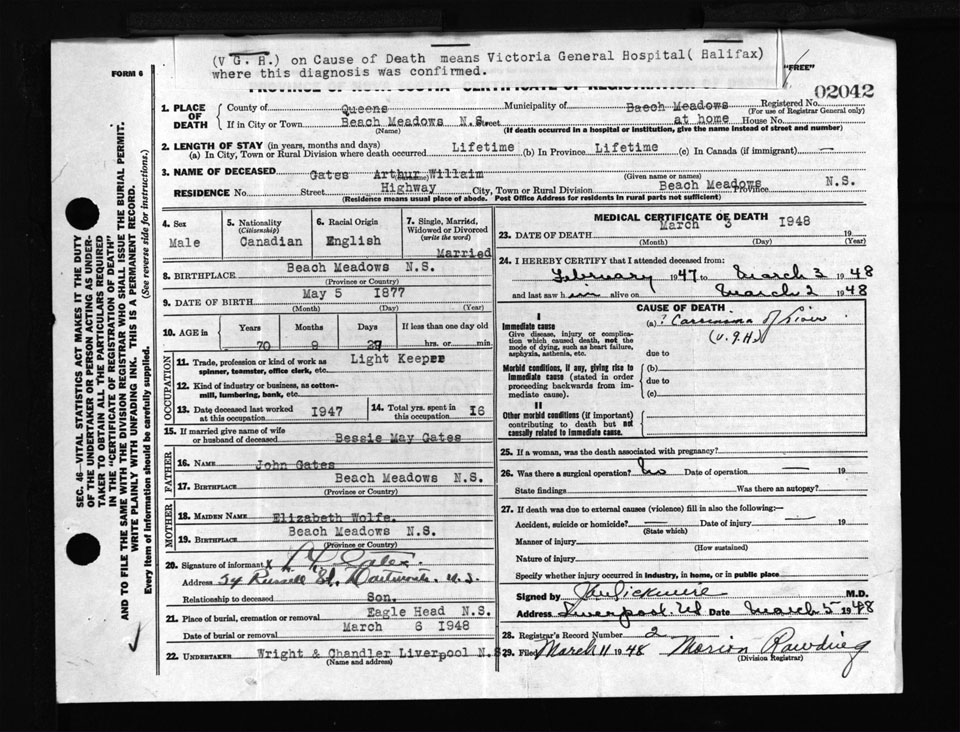 (V G. H.) on Cause of Death means Victoria General Hospital( Halifax)
where this diagnosis was confirmed.
FORM 6
"FREE"
02042
SEC. 46—VITAL STATISTICS ACT MAKES IT THE DUTY
OF THE UNDERTAKER OR PERSON ACTING AS UNDER-
TAKER TO OBTAIN ALL THE PARTICULARS REQUIRED
IN THE "CERTIFICATE OF REGISTRATION OF DEATH"
AND TO FILE THE SAME WITH THE DIVISION REGISTRAR WHO SHALL ISSUE THE BURIAL PERMIT.
WRITE PLAINLY WITH UNFADING INK. THIS IS A PERMANENT RECORD.
Every item of information should be carefully supplied. (See reverse side for instructions.)
1. PLACE OF DEATH
County of Queens Municipality of Baech Meadows Registered No.
(For use of Registrar General only)
If in City or Town Beach Meadows N.S. Street at home House No.
(Name) (If death occurred in a hospital or institution, give the name instead of street and number)
2. LENGTH OF STAY (in years, months and days)
(a) In City, Town or Rural Division where death occurred Lifetime (b) In Province Lifetime (c) In Canada (if immigrant) —
3. NAME OF DECEASED Gates Arthur Willaim
(Given name or names)
RESIDENCE No. Street Highway City, Town or Rural Division Beach Meadows Province N.S.
(Residence means usual place of abode. Post Office Address for residents in rural parts not sufficient)
4. Sex
Male
5. Nationality
(Citizenship)
Canadian
6. Racial Origin
English
7. Single, Married,
Widowed or Divorced
(write the word)
Married
8. BIRTHPLACE Beach Meadows N.S.
(Province or Country)
9. DATE OF BIRTH May 5 1877
(Month) (Day) (Year)
10. AGE in
Years Months Days If less than one day old
70 9 27 hrs. or min.
OCCUPATION
11. Trade, profession or kind of work as Light Keeper
spinner, teamster, office clerk, etc.
12. Kind of industry or business, as cotton-
mill, lumbering, bank, etc.
13. Date deceased last worked
at this occupation 1947
14. Total yrs. spent in
this occupation I6
15. If married give name of wife
or husband of deceased Bessie May Gates
FATHER
16. NAME John Gates
17. BIRTHPLACE Beach Meadows N.S.
(Province or Country)
MOTHER
18. MAIDEN NAME Elizabeth Wolfe.
19. BIRTHPLACE Beach Meadows N.S.
(Province or Country)
20. Signature of informant X Gates.
Address 54 Russell St, Dartmouth. N.S.
Relationship to deceased Son.
21. Place of burial, cremation or removal Eagle Head N.S.
Date of burial or removal March 6 1948
22. UNDERTAKER Wright & Chandler Liverpool N.S.
(Name and address)
MEDICAL CERTIFICATE OF DEATH
23. DATE OF DEATH March 3 I948 19
(Month) (Day) (Year)
24. I HEREBY CERTIFY that I attended deceased from:
February 1947 to March 3 1948
and last saw him alive on March 2 1948
CAUSE OF DEATH
I
Immediate cause
Give disease, injury or complica-
tion which caused death, not the
mode of dying, such as heart failure,
asphyxia, asthenia, etc.
(a) ? Carcinoma of Liver
(V.G.H.)
due to
Morbid conditions, if any, giving rise to
immediate cause (stated in order
proceeding backwards from im-
mediate cause).
(b)
due to
(c)
II
Other morbid conditions (if important)
contributing to death but not
causally related to immediate cause.
25. If a woman, was the death associated with pregnancy?
26. Was there a surgical operation? No Date of operation — 19
State findings Was there an autopsy?
27. If death was due to external causes (violence) fill in also the following:
Accident, suicide or homicide? — Date of injury — 19
(State which)
Manner of injury
(How sustained)
Nature of injury
Specify whether injury occurred in industry, in home, or in public place
Signed by M.D.
Address Liverpool NS Date March 5 1948
28. Registrar's Record Number 2
29. Filed March 11 1948 Marion Rawding
(Division Registrar)